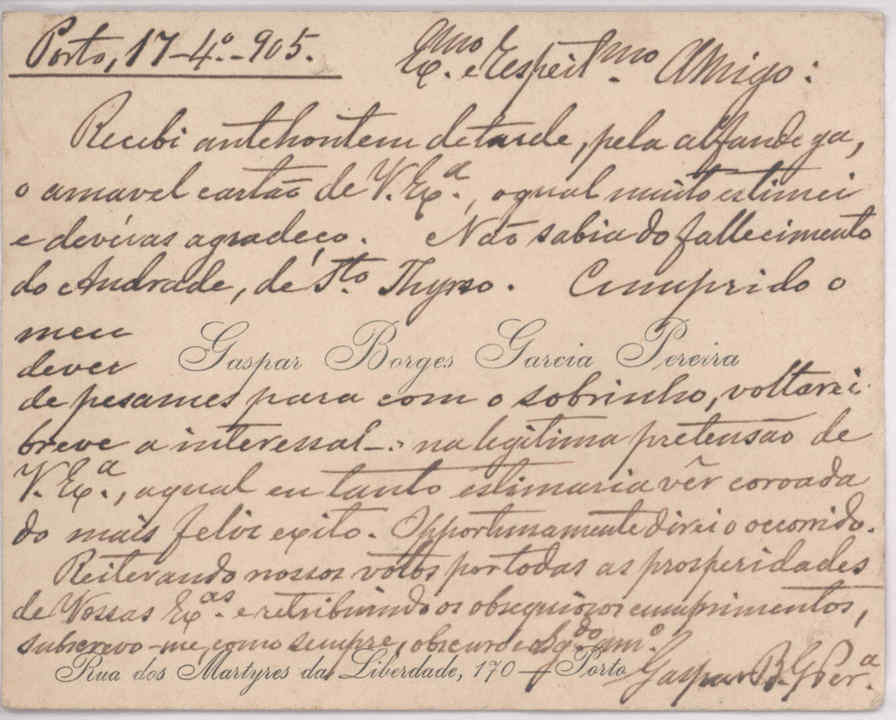 Porto, 17-4º-905.
Exmo. e Respeitmo. Amigo:
Recebi antehontem de tarde, pela alfandega,
o amavel cartão de V. Exª., o qual muito estimei
e devéras agradeço. Não sabia do fallecimento
do Andrade, de Sto. Thyrso. Cumprido o
meu
dever
Gaspar Borges Garcia Pereira
de pesames para com o sobrinho, voltarei
breve a interessal-. na legitima pretensão de
V. Exª., a qual eu tanto estimaria vêr coroada
do mais feliz exito. Opportunamente direi o occorrido.
Reiterando nossos votos por todas as prosperidades
de Vossas Exas. e retribuindo os obsequiosos cumprimentos,
subscrevo-me, como sempre, obscuro e
Rua dos Martyres da Liberdade, 170 — Porto
Gaspar B. G. Per.ª